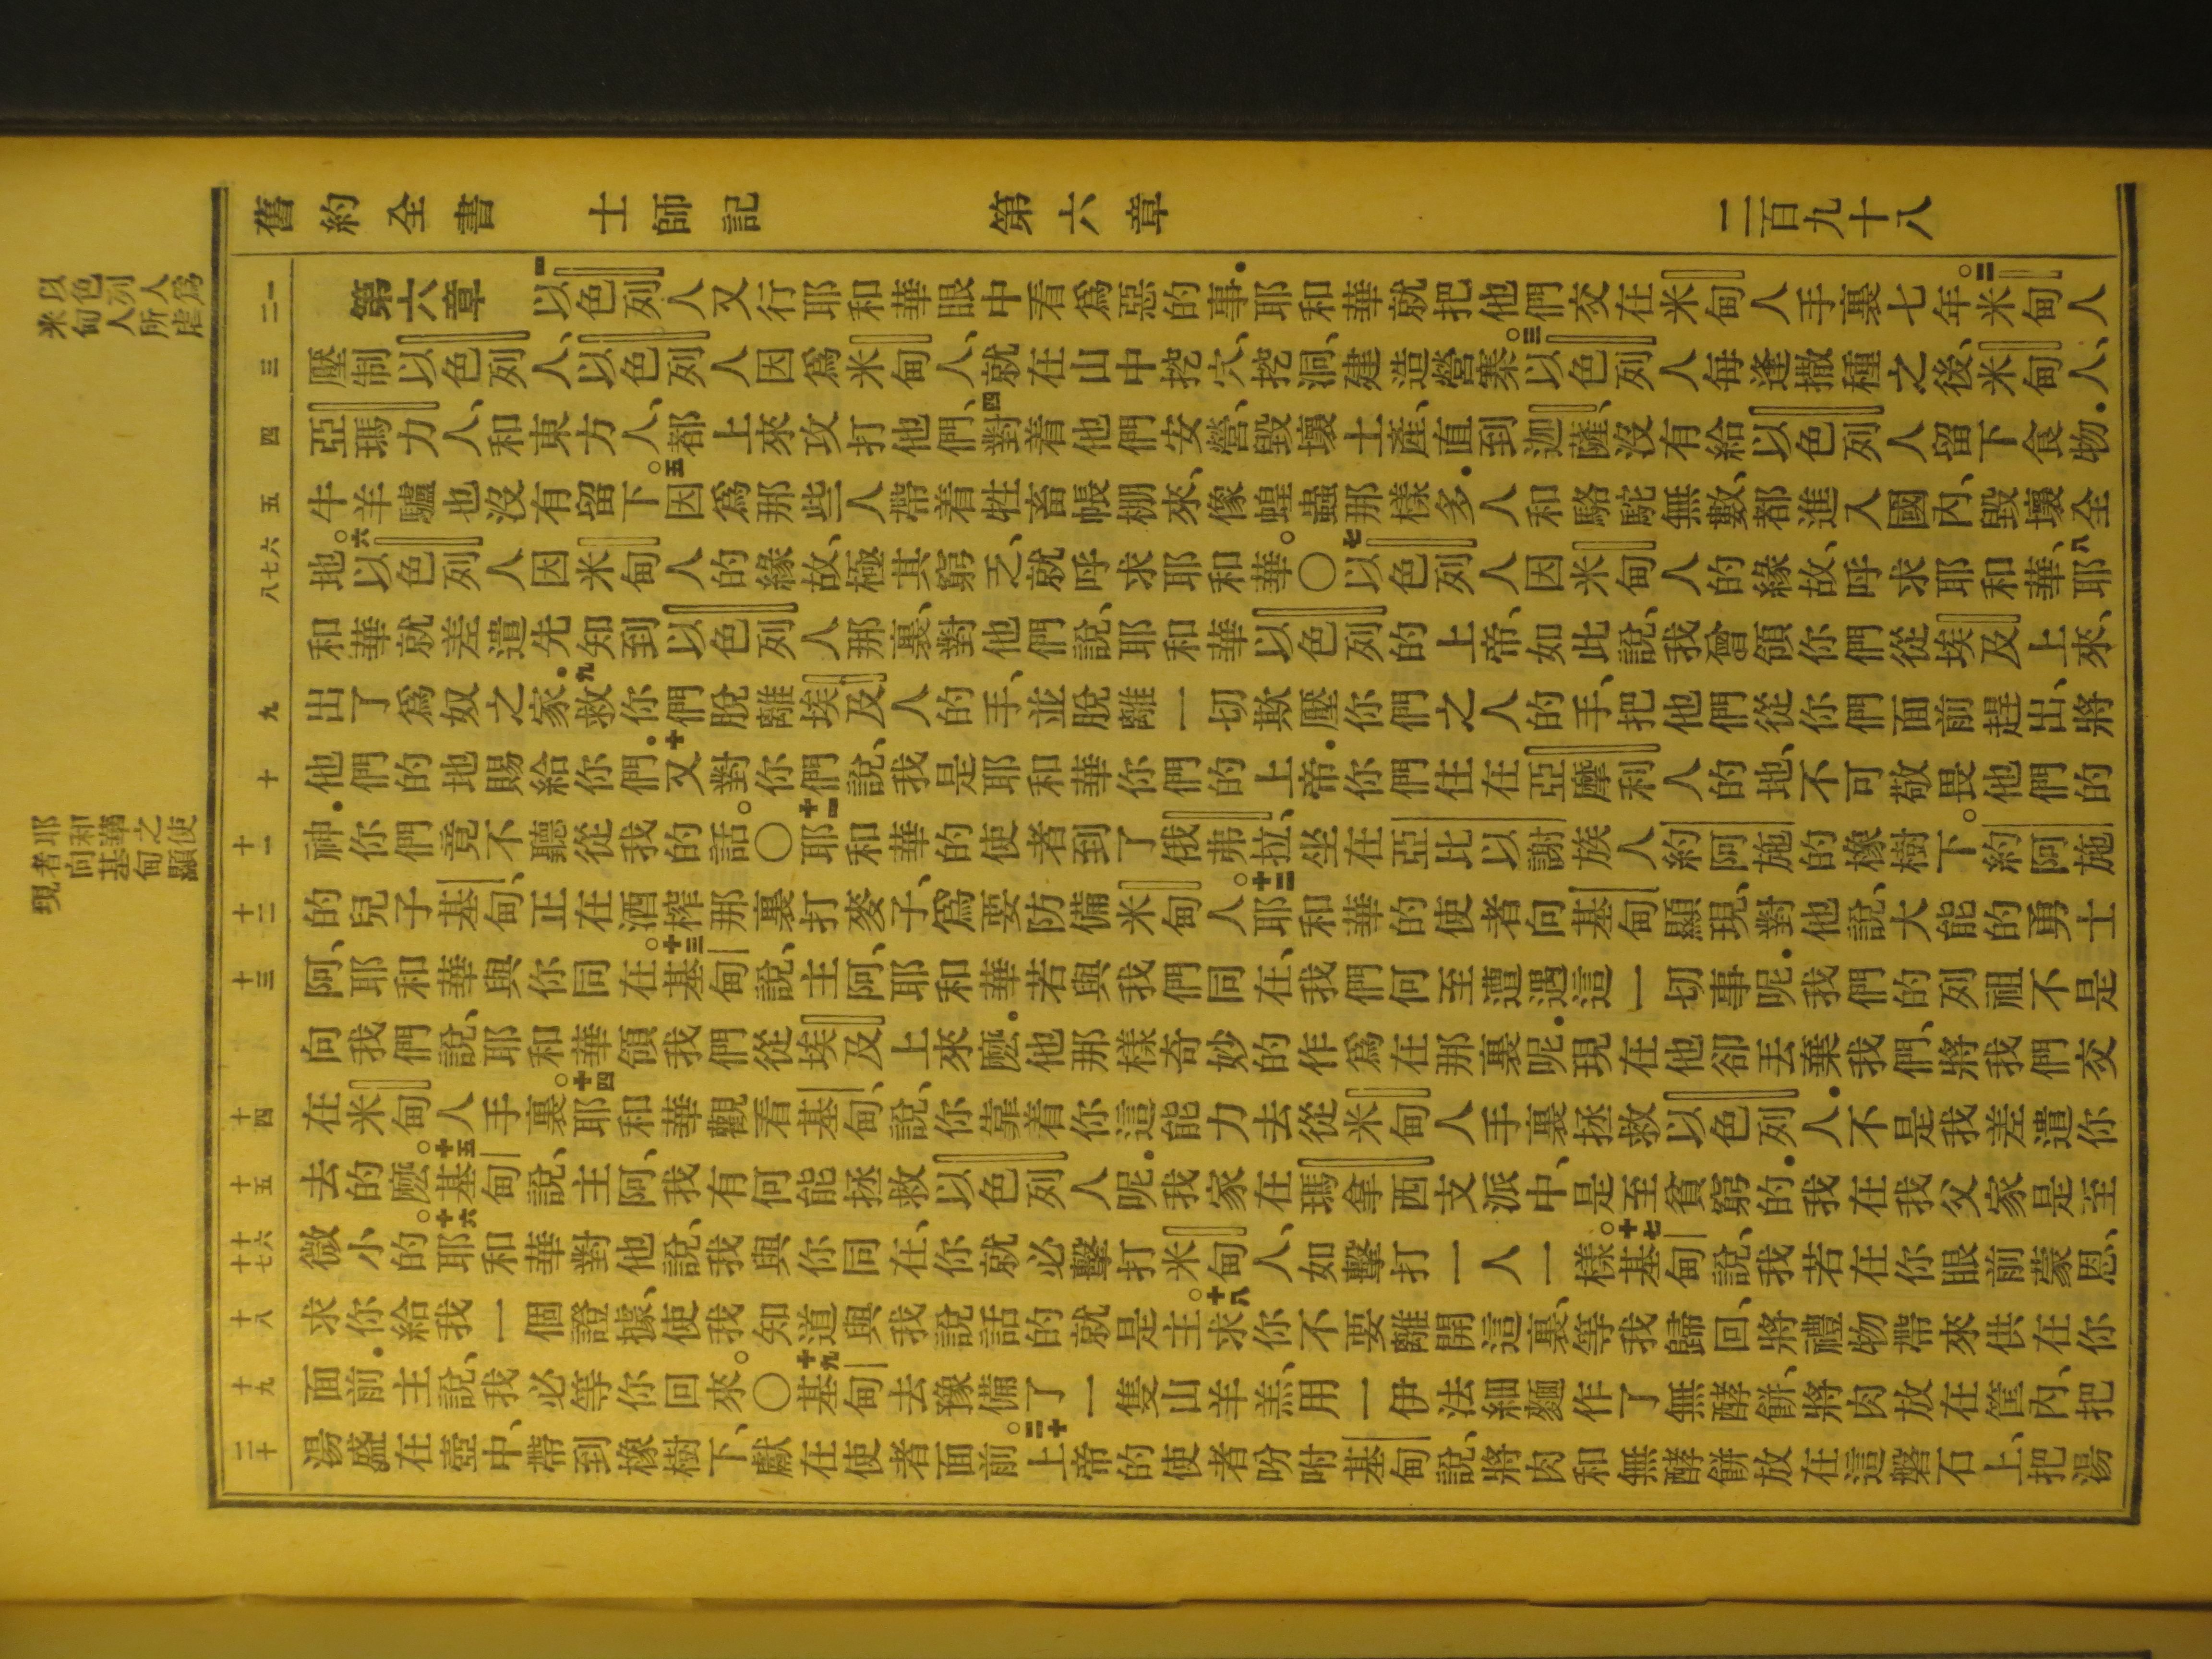 舊約全書 士師記 第六章 二百九十八
以色列人爲
米甸人所虐
耶和華之使
者向基甸顯
現
一 二
三
四
五
六 七 八
九
十
十一
十二
十三
十四
十五
十六 十七
十八
十九
二十
第六章 一以色列人又行耶和華眼中看爲惡的事．耶和華就把他們交在米甸人手裏七年。二米甸人
壓制以色列人、以色列人因爲米甸人、就在山中挖穴、挖洞、建造營寨。三以色列人每逢撒種之後、米甸人、
亞瑪力人、和東方人、都上來攻打他們、四對着他們安營、毀壞土產、直到迦薩、沒有給以色列人留下食物．
牛羊驢也沒有留下。五因爲那些人帶着牲畜帳棚來、像蝗蟲那樣多．人和駱駝無數、都進入國內、毀壞全
地。六以色列人因米甸人的緣故、極其窮乏、就呼求耶和華。○七以色列人因米甸人的緣故、呼求耶和華、八耶
和華就差遣先知到以色列人那裏、對他們說、耶和華以色列的上帝、如此說、我曾領你們從埃及上來、
出了爲奴之家．九救你們脫離埃及人的手、並脫離一切欺壓你們之人的手、把他們從你們面前趕出、將
他們的地賜給你們．十又對你們說、我是耶和華你們的上帝．你們住在亞摩利人的地、不可敬畏他們的
神．你們竟不聽從我的話。○十一耶和華的使者到了俄弗拉、坐在亞比以謝族人約阿施的橡樹下。約阿施
的兒子基甸、正在酒榨那裏打麥子、爲要防備米甸人。十二耶和華的使者向基甸顯現、對他說、大能的勇士
阿、耶和華與你同在。十三基甸說、主阿、耶和華若與我們同在、我們何至遭遇這一切事呢．我們的列祖不是
向我們說、耶和華領我們從埃及上來麽．他那樣奇妙的作爲在那裏呢．現在他卻丟棄我們、將我們交
在米甸人手裏。十四耶和華觀看基甸、說、你靠着你這能力去從米甸人手裏拯救以色列人．不是我差遣你
去的麽。十五基甸說、主阿、我有何能拯救以色列人呢．我家在瑪拿西支派中、是至貧窮的．我在我父家是至
微小的。十六耶和華對他說、我與你同在、你就必擊打米甸人、如擊打一人一樣。十七基甸說、我若在你眼前蒙恩、
求你給我一個證據、使我知道與我說話的就是主。十八求你不要離開這裏、等我歸回、將禮物帶來供在你
面前．主說、我必等你回來。○十九基甸去豫備了一隻山羊羔、用一伊法細麵作了無酵餅、將肉放在筐內、把
湯盛在壺中、帶到橡樹下、獻在使者面前。二十上帝的使者吩咐基甸說、將肉和無酵餅放在這磐石上、把湯